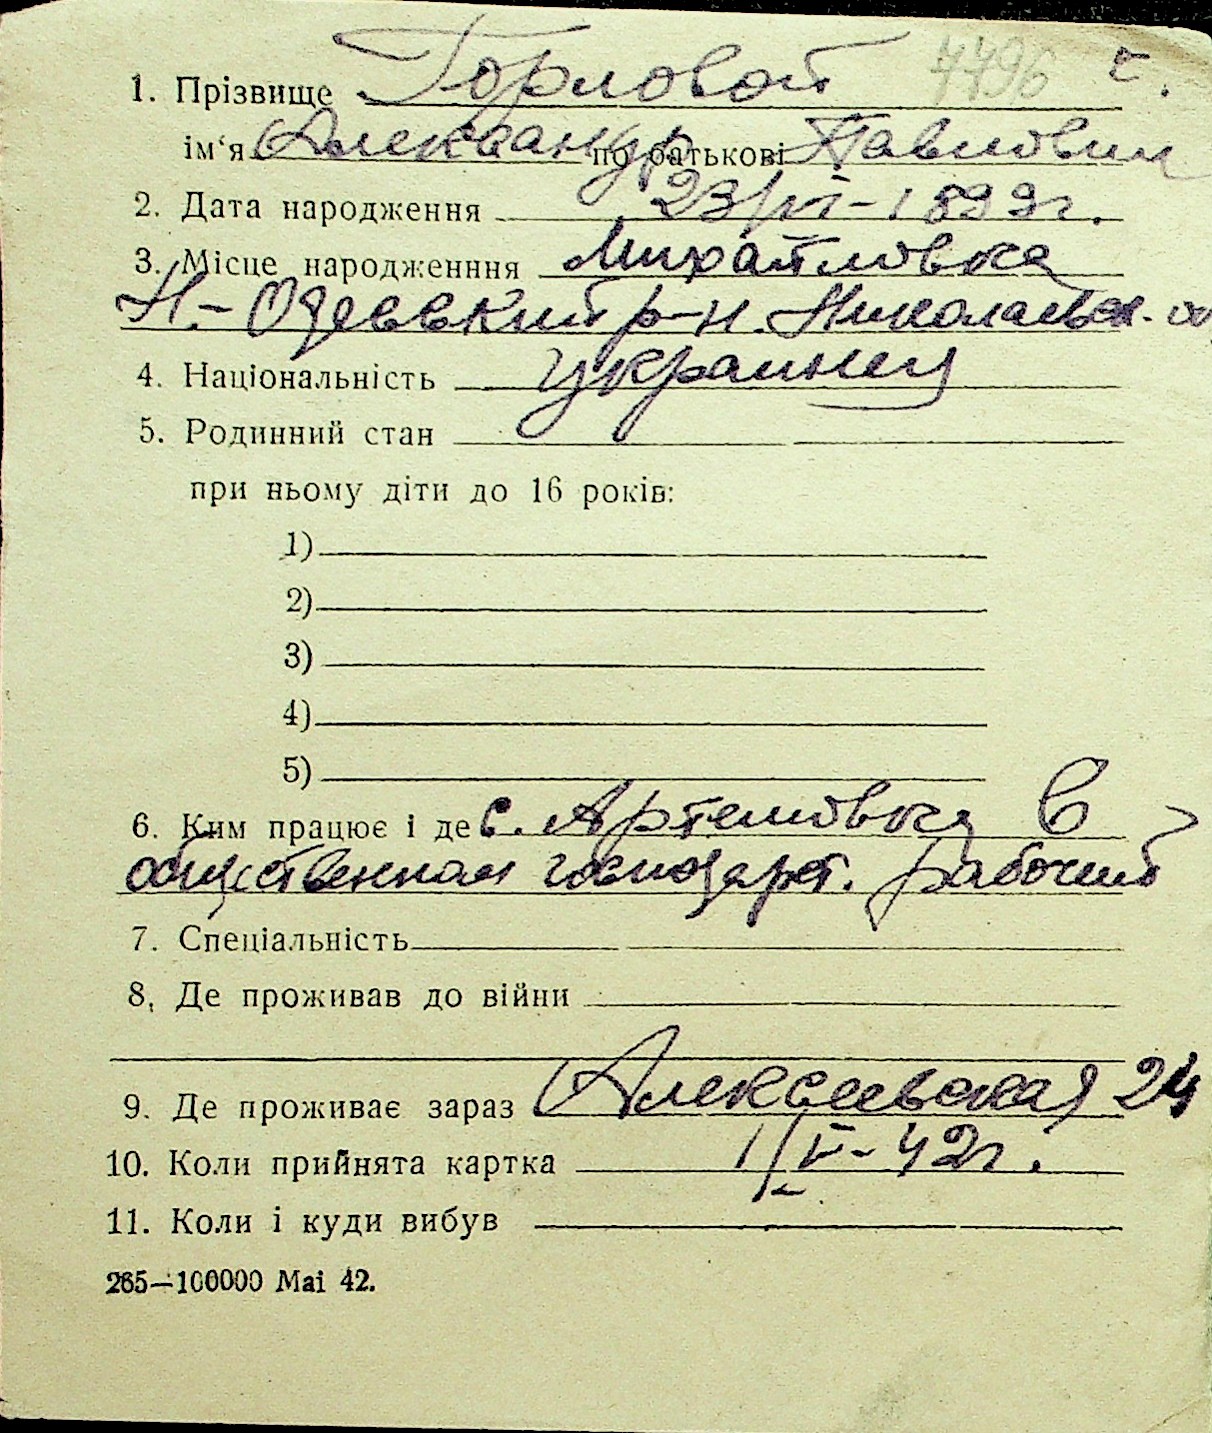 1. Прізвище Горловой 7796
ім‘я Александр по батькові Павлович
2. Дата народження 23/VI-1899г.
3. Місце народженння Михайловка
Н.-Одесский р-н. Николаевск. об
4. Національність украинец
5. Родинний стан
при ньому діти до 16 років:
1)
2)
3)
4)
5)
6. Ким працює і де с. Артемовка в
общественном господарст. Рабочий
7. Спеціальність
8. Де проживав до війни
9. Де проживає зараз Алексеевская 24
10. Коли прийнята картка 1/V-42г.
11. Коли і куди вибув
265—100000 Mai 42.